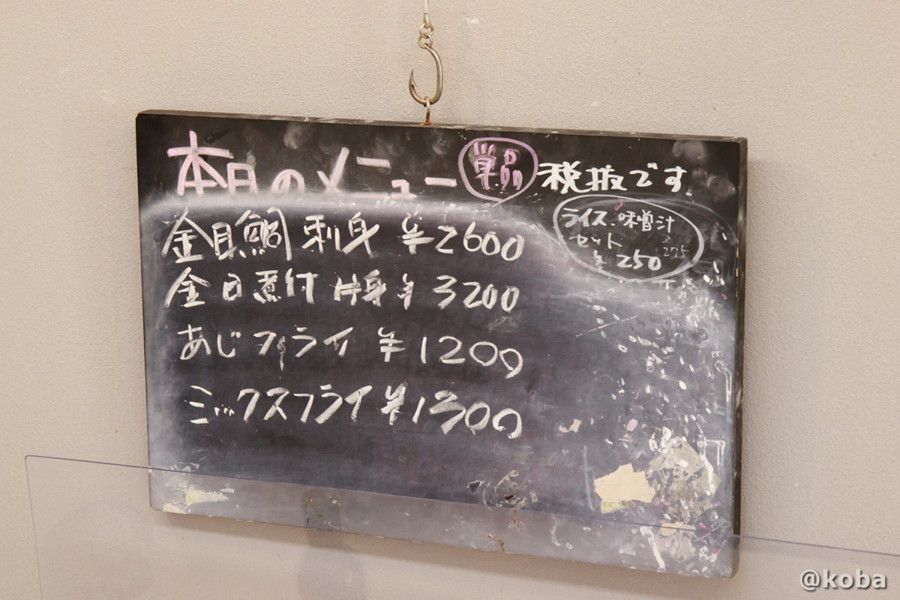 本日のメニュー 単品 税抜です
ライス、味噌汁
セット
275
¥250
金目鯛 刺身 ¥2600
金目煮付 片身 ¥3200
あじフライ ¥1200
ミックスフライ ¥1300
@koba